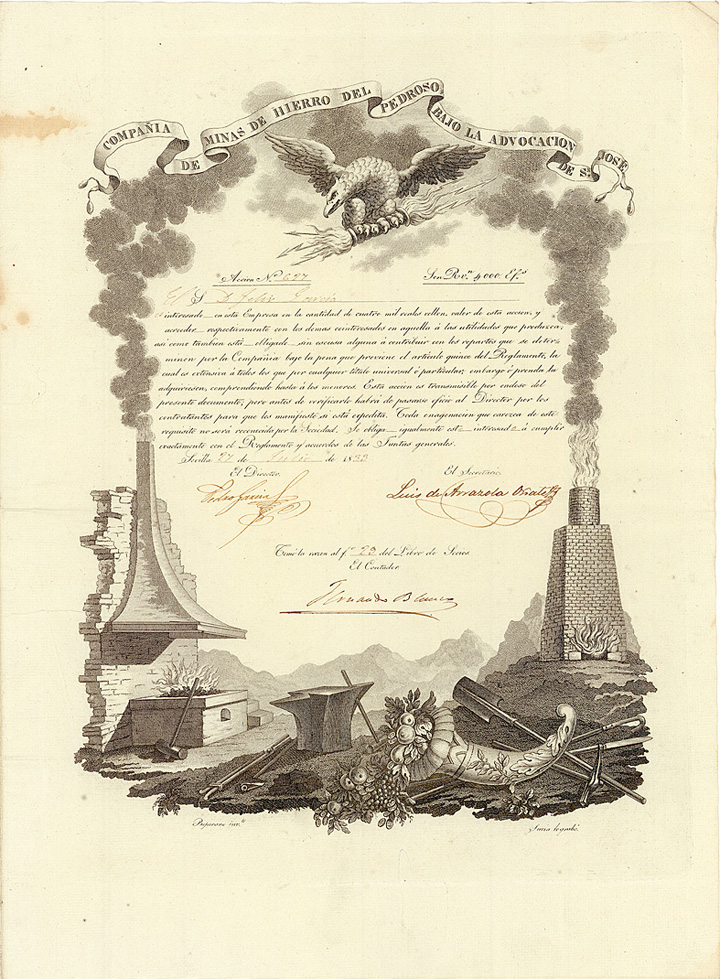 COMPAÑIA DE MINAS DE HIERRO DEL PEDROSO BAJO LA ADVOCACION DE Sn. JOSÉ
Accion N.º 627
Son R.s v.n 4000 Ef.s
El S. D. Felix García
interesado en esta Empresa en la cantidad de cuatro mil reales vellon, valor de esta accion, y
acceder respectivamente con los demas cointeresados en aquella á las utilidades que produzca;
asi como tambien está obligado sin escusa alguna á contribuir con los repartos que se deter-
minen por la Compañia bajo la pena que previene el articulo quince del Reglamento, la
cual es extensiva á todos los que por cualquier titulo universal ó particular, embargo ó prenda la
adquiriesen, comprendiendo hasta á los menores. Esta accion es transmisible por endoso del
presente documento, pero antes de verificarlo habrá de pasarse oficio al Director por los
contratantes para que les manifieste si está expedita. Toda enagenacion que carezca de este
requisito no será reconocida por la Sociedad. Se obliga igualmente este interesado á cumplir
exactamente con el Reglamento y acuerdos de las Juntas generales.
Sevilla 27 de Julio de 1833
El Director
El Secretario
Pedro García
Luis de Arrazola Oñate
Tomé la razon al f.º 23 del Libro de Socios.
El Contador
Fernando Blanco
Bejarano inv.t